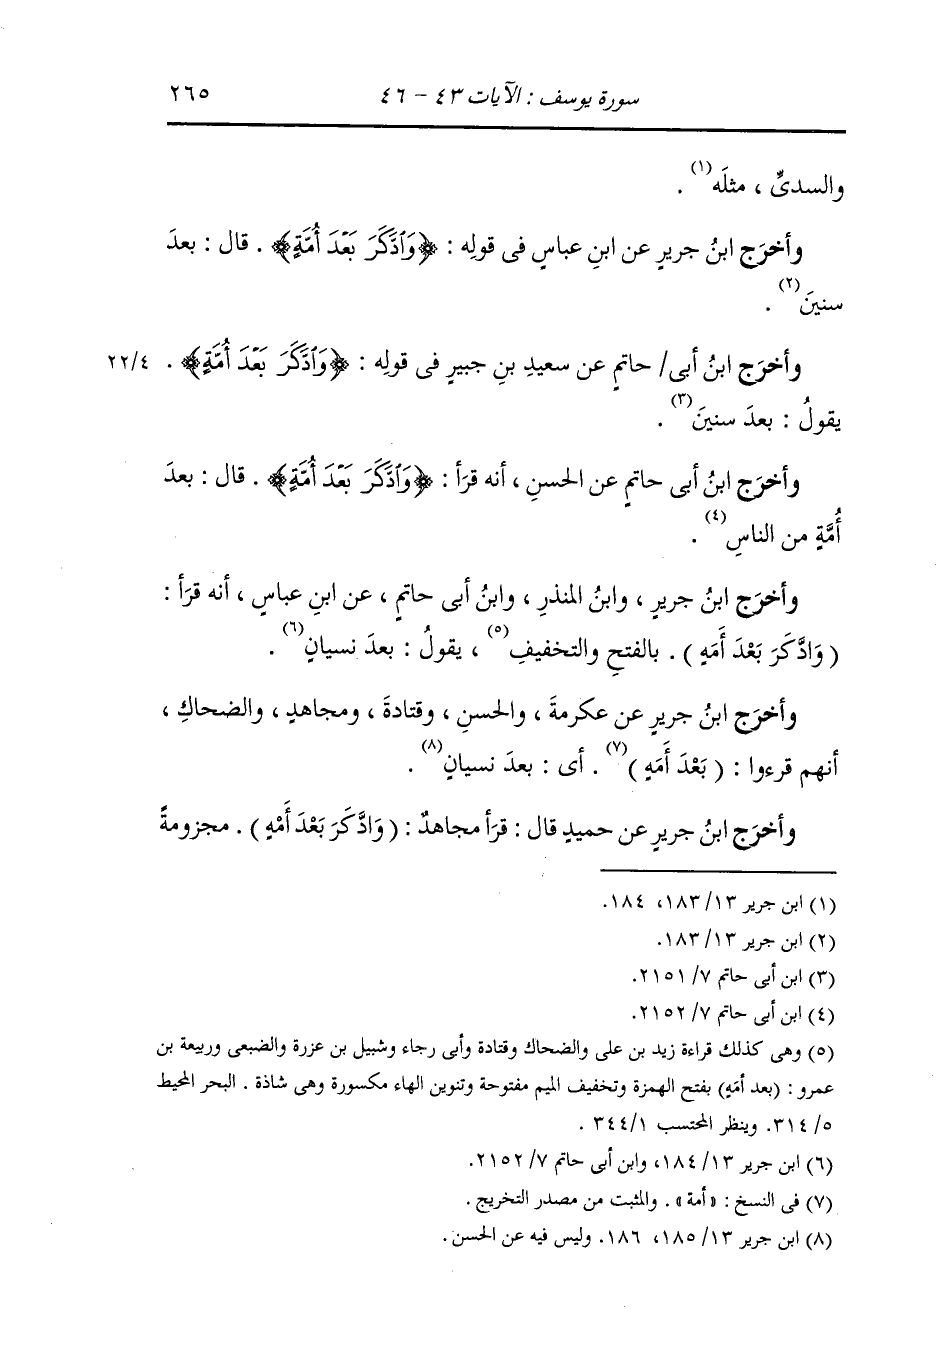 سورة يوسف : الآيات ٤٣ - ٤٦ ٢٦٥
والسدىِّ ، مثلَه(١) .
وأخرَج ابنُ جريرٍ عن ابنِ عباسٍ فى قولِه : ﴿وَٱدَّكَرَ بَعْدَ أُمَّةٍ﴾ . قال : بعدَ
سنينَ(٢) .
وأخرَج ابنُ أبى/ حاتمٍ عن سعيدِ بنِ جبيرٍ فى قولِه : ﴿وَٱدَّكَرَ بَعْدَ أُمَّةٍ﴾ . ٢٢/٤
يقولُ : بعدَ سنينَ(٣) .
وأخرَج ابنُ أبى حاتمٍ عن الحسنِ ، أنه قرَأ : ﴿وَٱدَّكَرَ بَعْدَ أُمَّةٍ﴾ . قال : بعدَ
أُمَّةٍ من الناسِ(٤) .
وأخرَج ابنُ جريرٍ ، وابنُ المنذرِ ، وابنُ أبى حاتمٍ ، عن ابنِ عباسٍ ، أنه قرَأ :
( وَادَّكَرَ بَعْدَ أَمَهٍ ) . بالفتحِ والتخفيفِ(٥) ، يقولُ : بعدَ نسيانٍ(٦) .
وأخرَج ابنُ جريرٍ عن عكرمةَ ، والحسنِ ، وقتادةَ ، ومجاهدٍ ، والضحاكِ ،
أنهم قرءوا : ( بَعْدَ أَمَهٍ )(٧) . أى : بعدَ نسيانٍ(٨) .
وأخرَج ابنُ جريرٍ عن حميدٍ قال : قرَأ مجاهدٌ : ( وَادَّكَرَ بَعْدَ أَمْهٍ ) . مجزومةً
(١) ابن جرير ١٣/ ١٨٣، ١٨٤.
(٢) ابن جرير ١٣/ ١٨٣.
(٣) ابن أبى حاتم ٧/ ٢١٥١.
(٤) ابن أبى حاتم ٧/ ٢١٥٢.
(٥) وهى كذلك قراءة زيد بن على والضحاك وقتادة وأبى رجاء وشبيل بن عزرة والضبعى وربيعة بن
عمرو : (بعد أمَهٍ) بفتح الهمزة وتخفيف الميم مفتوحة وتنوين الهاء مكسورة وهى شاذة . البحر المحيط
٥/ ٣١٤. وينظر المحتسب ٣٤٤/١ .
(٦) ابن جرير ١٣/ ١٨٤، وابن أبى حاتم ٧/ ٢١٥٢.
(٧) فى النسخ : «أمة» . والمثبت من مصدر التخريج .
(٨) ابن جرير ١٣/ ١٨٥، ١٨٦. وليس فيه عن الحسن .